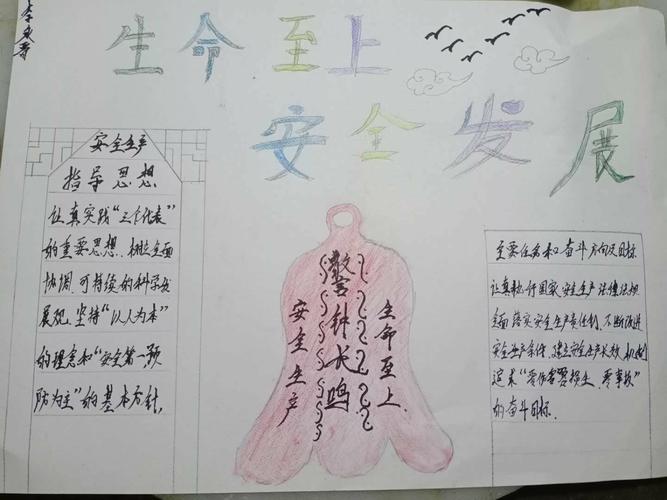 生命至上
安全发展
安全生产
指导思想
认真实践“三个代表”
的重要思想，树立全面
协调可持续的科学发
展观，坚持“以人为本”
的理念和“安全第一预
防为主”的基本方针，
安全生产
警钟长鸣
生命至上
主要任务和奋斗方向及目标
认真执行国家安全生产法律法规
全面落实安全生产责任制，不断改进
安全生产条件，建立安全生产长效机制
追求“零伤害零损失，零事故”
的奋斗目标.